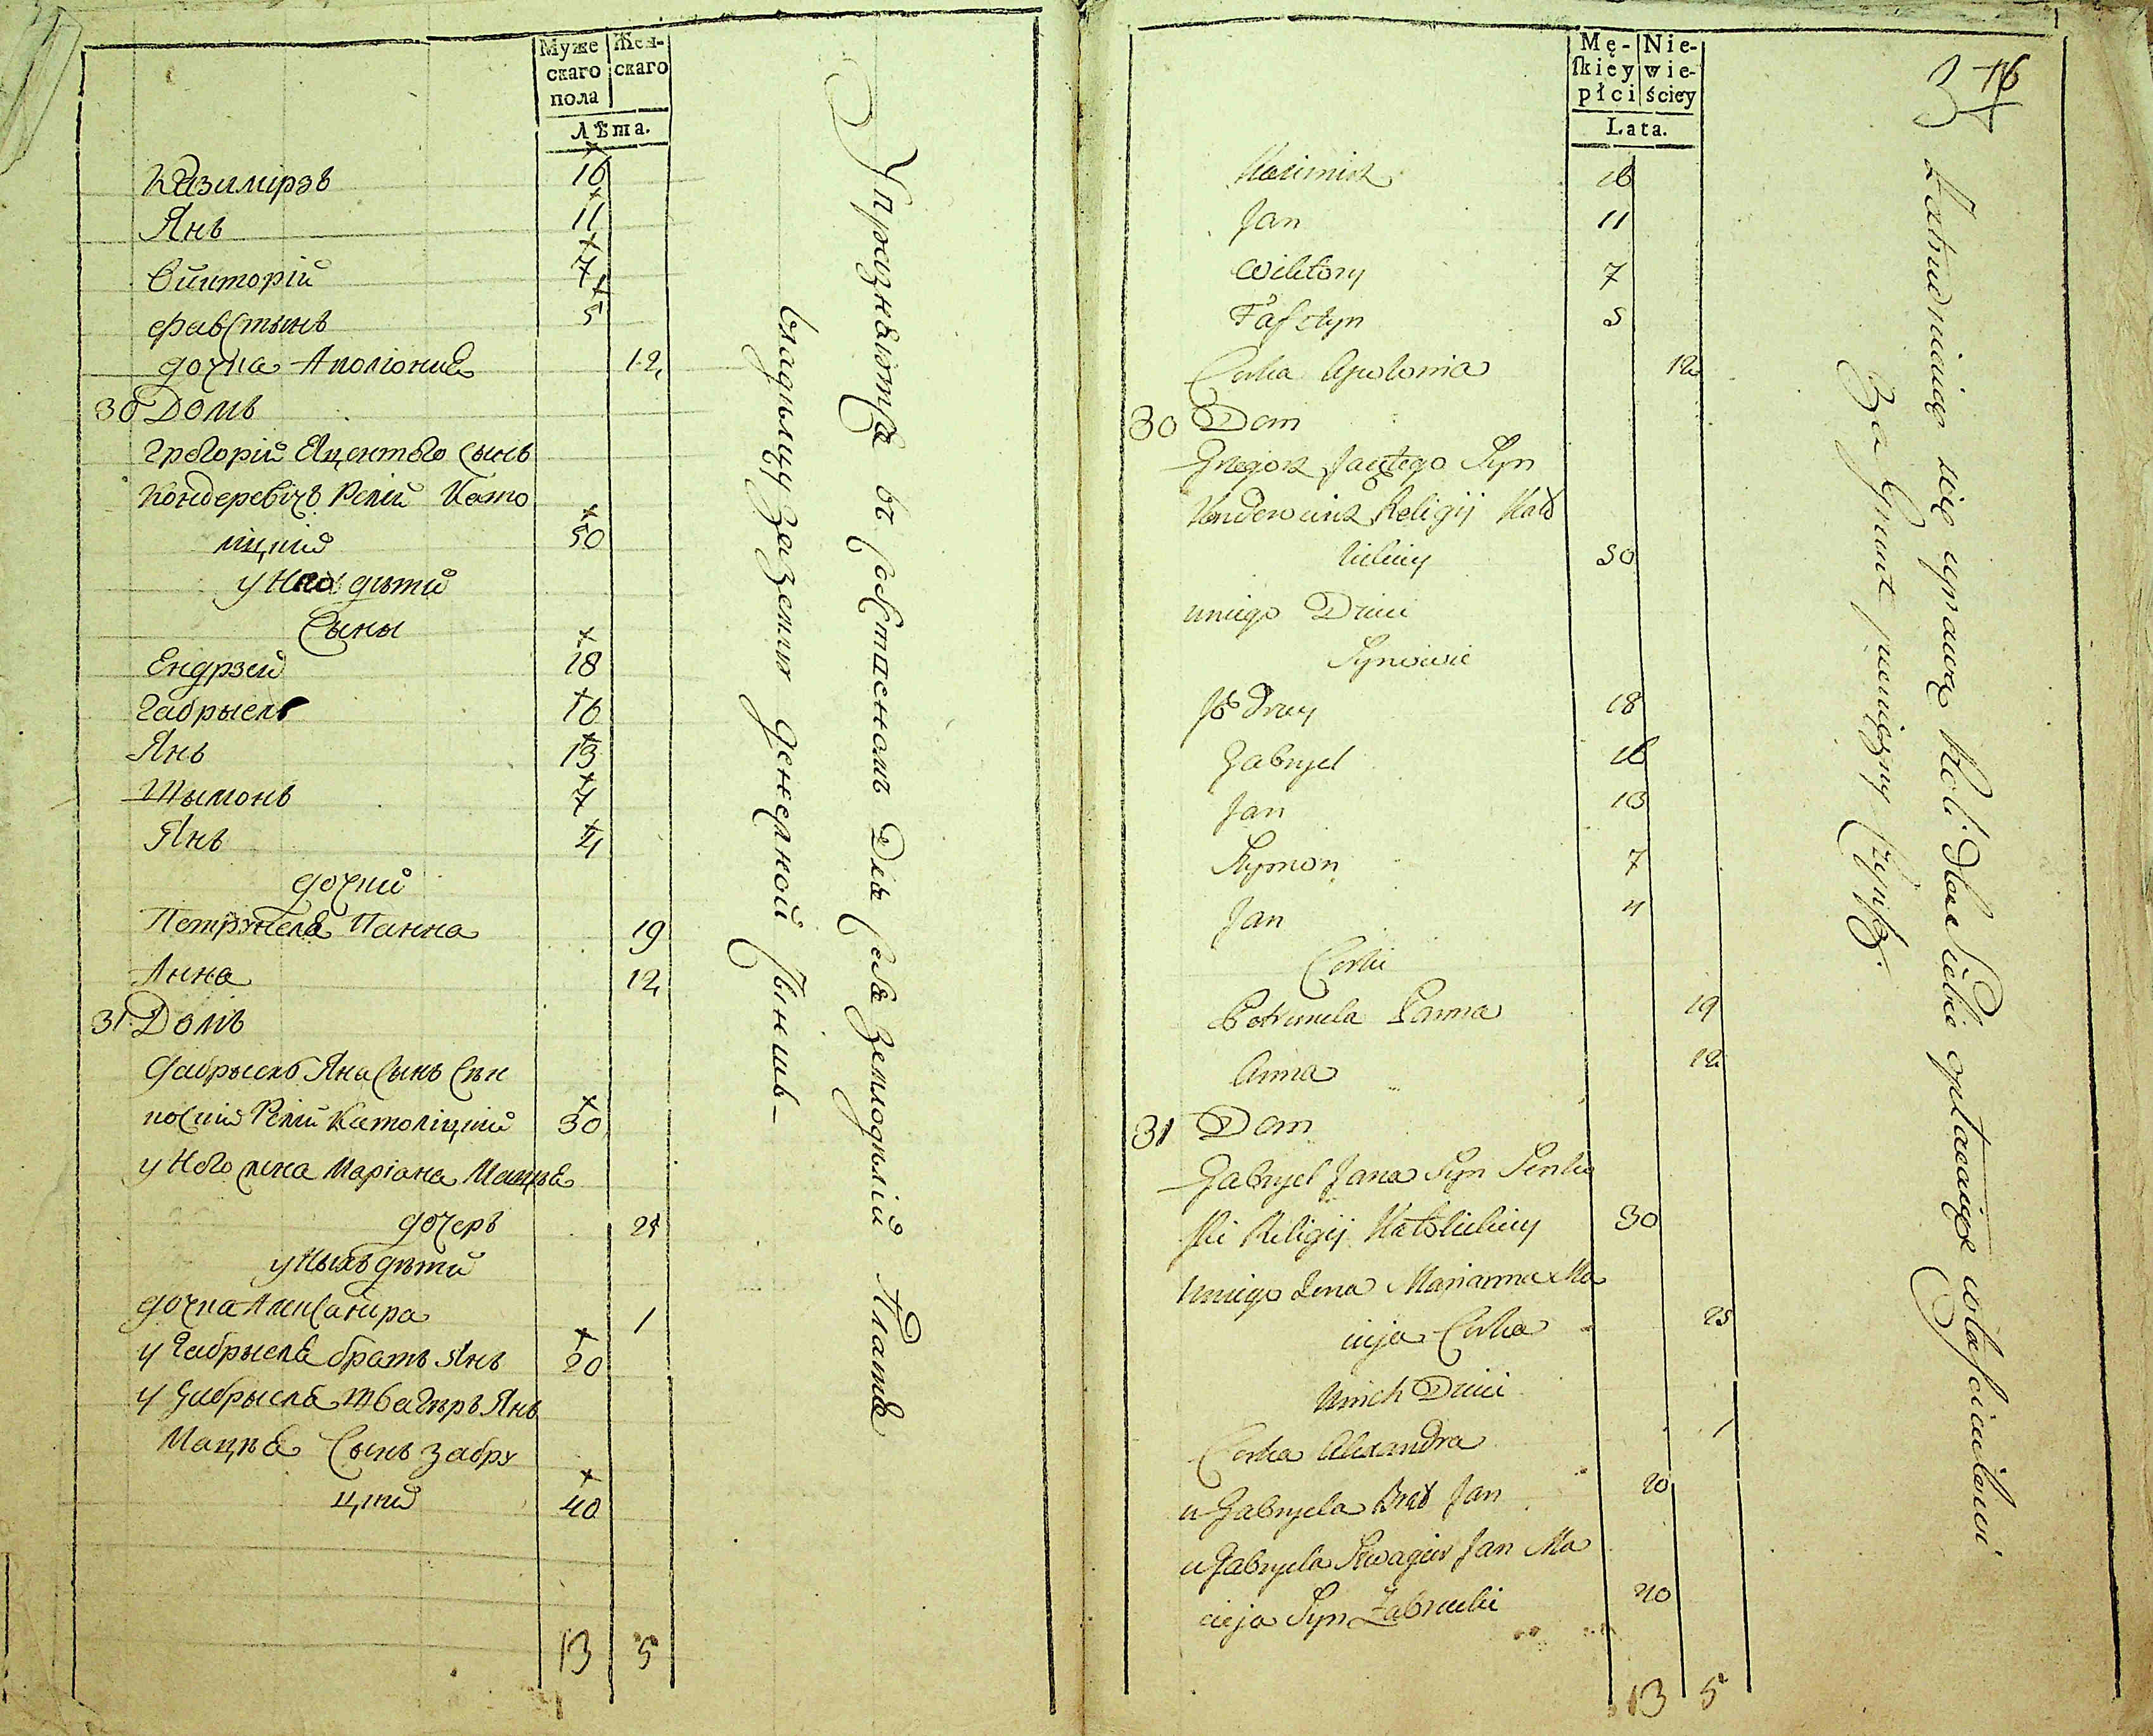 Муже Жен-
скаго скаго
пола
Лѣта.
Казимирзъ 16
Янъ 11
Викторій 7
Фавстынъ 5
дочка Аполіонія 12
30 Домъ
Грегорій Яцентего Сынъ
Кондеревичъ Релій Като
лицкій 50
у Него дѣти
Сыны
Ендрзей 18
Габрыель 16
Янъ 13
Шымонъ 7
Янъ 4
дочки
Петрунеля Панна 19
Анна 12
31 Домъ
Габрыель Яна Сынъ Сѣн
коскій Релій Католицкій 30
у Него жена Маріана Мацѣя
дочеръ 25
у Ныхъ дѣти
дочка Александра 1
у Габрыеля братъ Янъ 20
у Габрыеля Швагѣръ Янъ
Мацѣя Сынъ Забру
цкій 40
13 5
Упражняются въ Собственномъ Для Себя Земледѣліи Платя
владѣльцу За Землю денежной Чыншъ
Mę- Nie-
ſkiey wie-
płci ściey
Lata.
16
Kazimirz 16
Jan 11
Wiktory 7
Fasztyn 5
Corka Apolonia 12
30 Dom
Gregorz Jacętego Syn
Konderewicz Religij Kato
lickiey 50
u niego Dzieci
Synowie
Jędrzey 18
Gabryel 16
Jan 13
Szymon 7
Jan 4
Corki
Petrunela Panna 19
Anna 12
31 Dom
Gabryel Jana Syn Sienko
ski Religij Katolickiey 30
U niego Zona Marianna Ma
cieja Corka 25
U nich Dzieci
Corka Alexandra 1
u Gabryela Brat Jan 20
u Gabryela Szwagier Jan Ma
cieja Syn Zabrucki 40
13 5
Zatrudniaią się uprawą Roli dla Siebie opłacaiąc właścicielowi
Za Grunt pieniężny Czynsz.